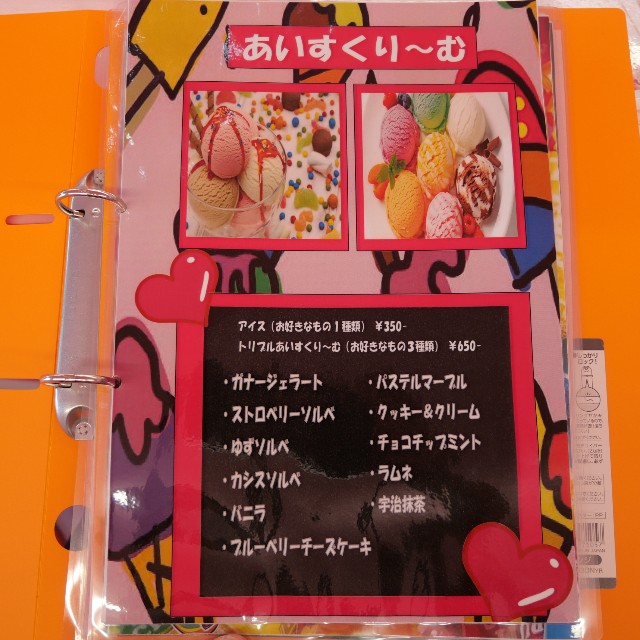 あいすくり〜む
アイス（お好きなもの１種類） ¥350-
トリプルあいすくり〜む（お好きなもの３種類） ¥650-
・ガナージェラート
・ストロベリーソルベ
・ゆずソルベ
・カシスソルベ
・バニラ
・ブルーベリーチーズケーキ
・パステルマーブル
・クッキー＆クリーム
・チョコチップミント
・ラムネ
・宇治抹茶